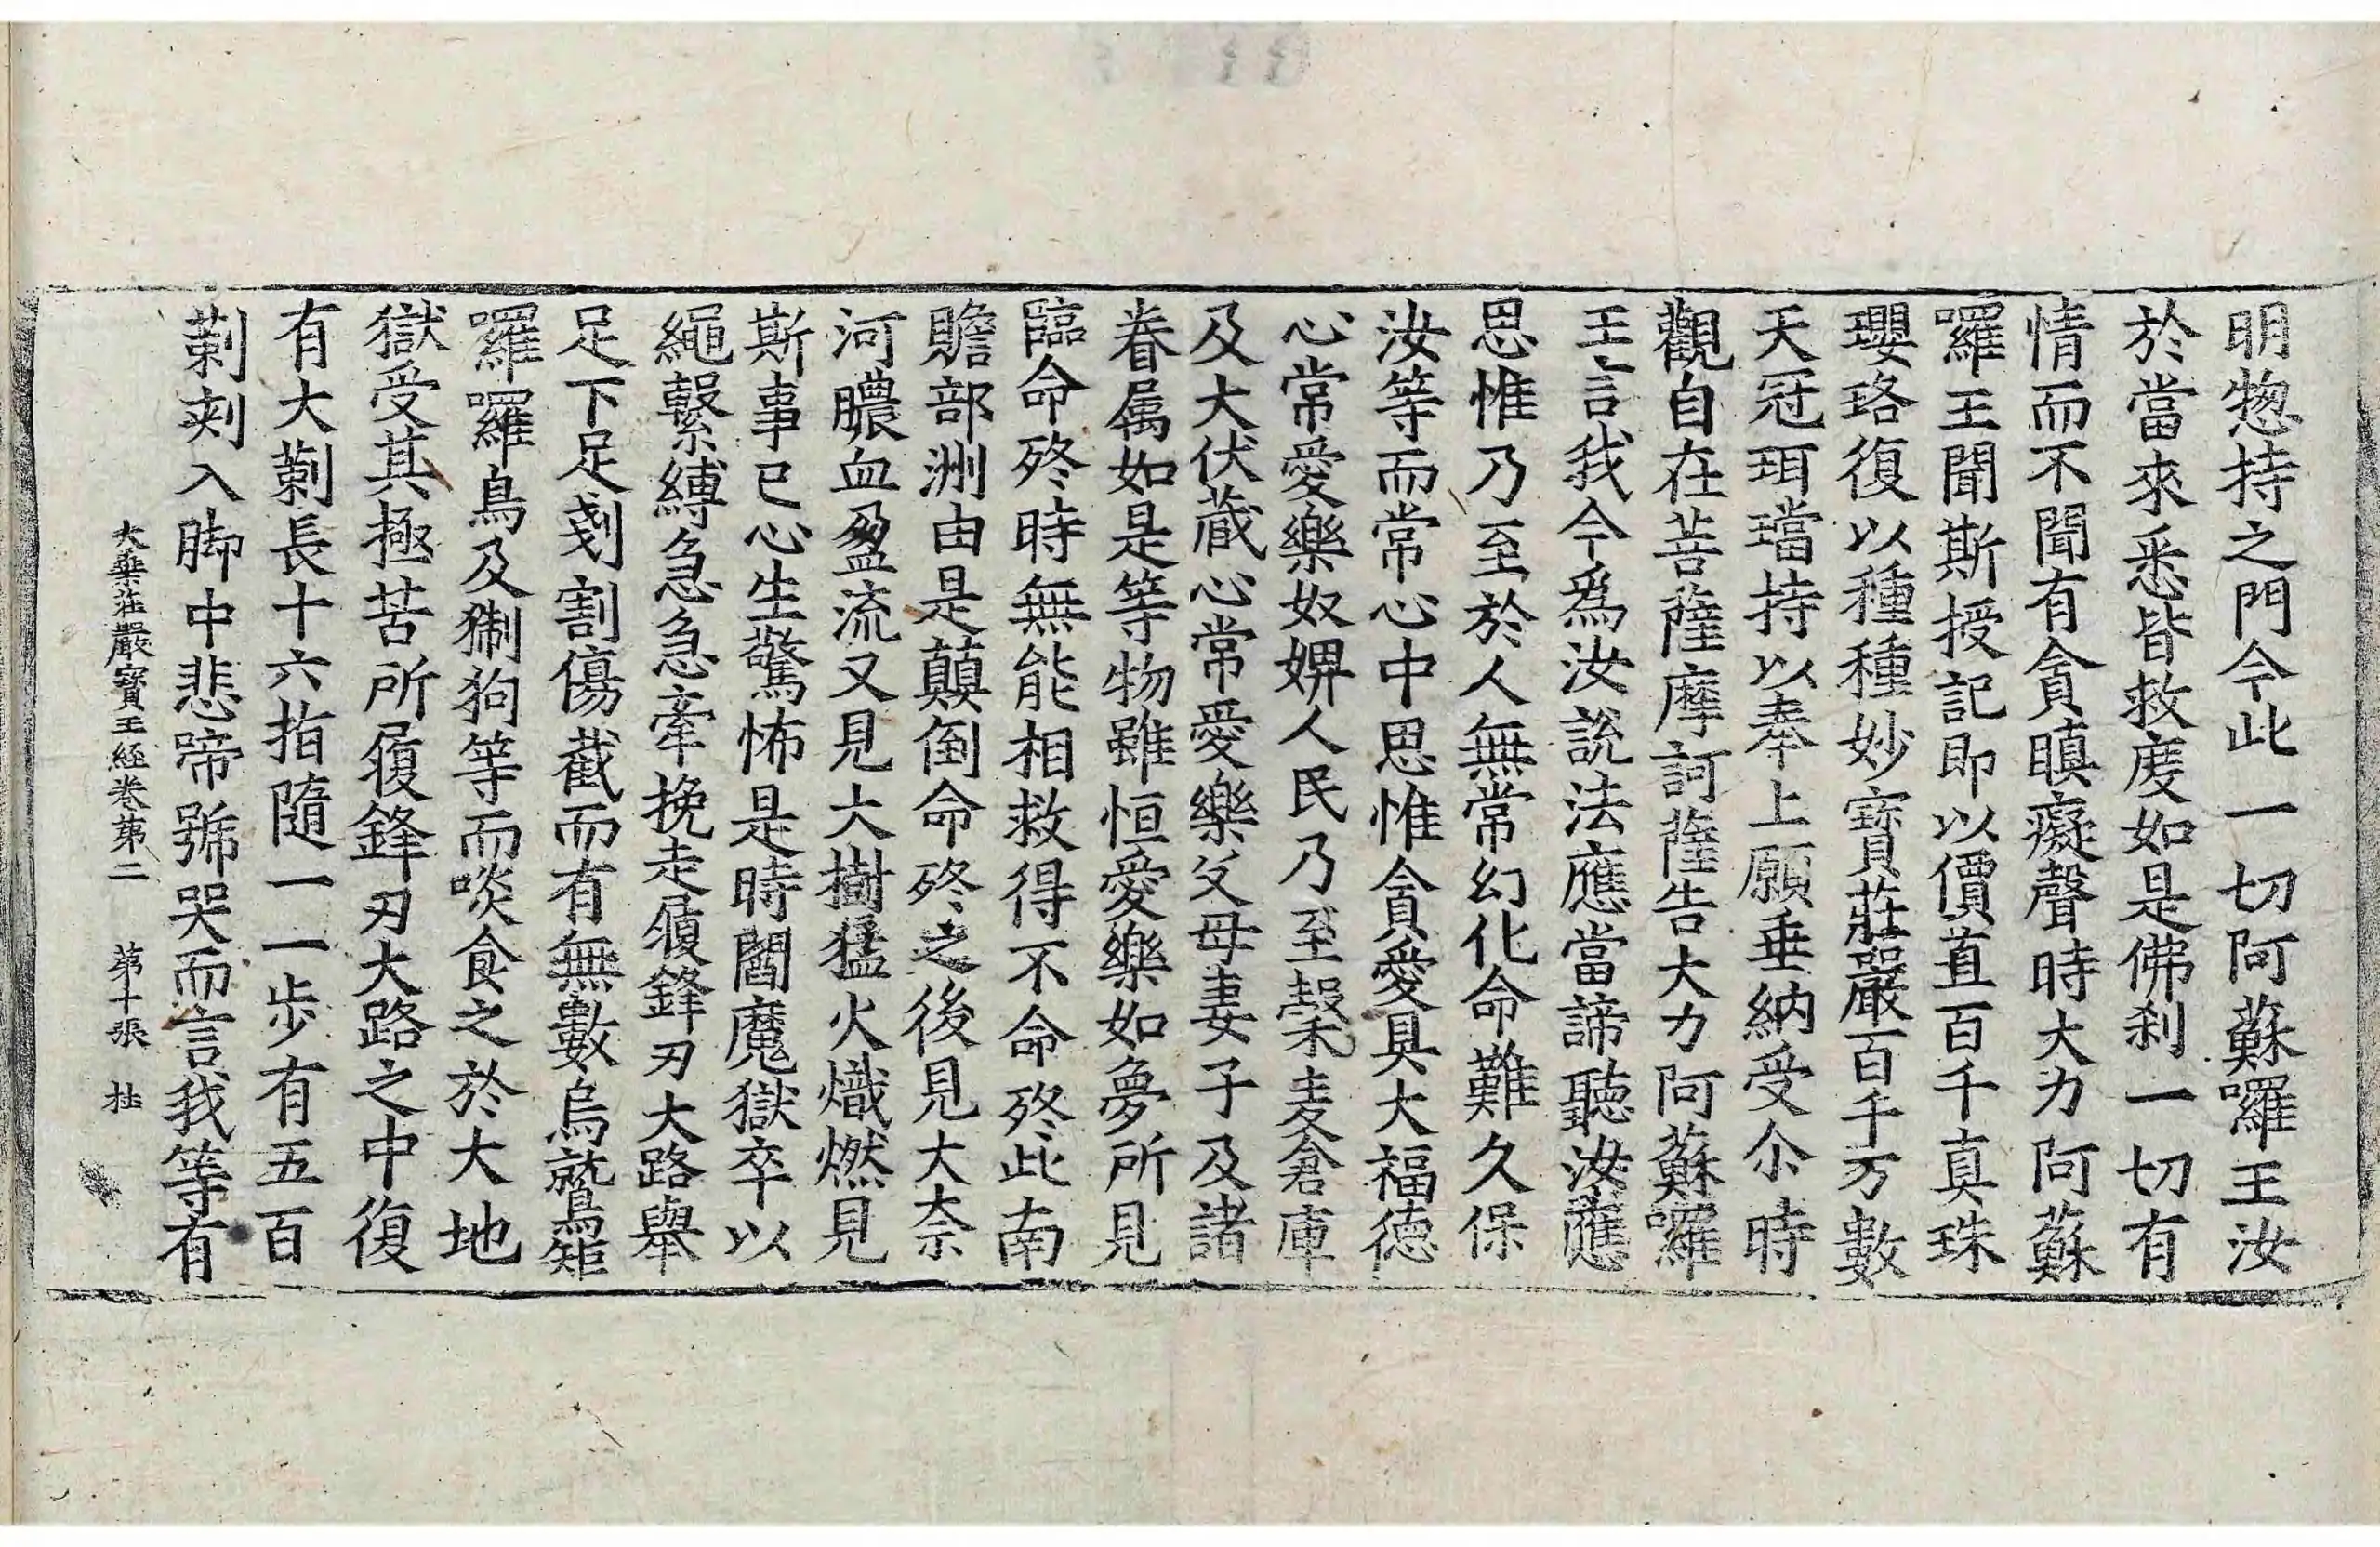 明惣持之門今此一切阿蘇囉王汝
於當來悉皆救度如是佛刹一切有
情而不聞有貪瞋癡聲時大力阿蘇
囉王聞斯授記即以價直百千真珠
瓔珞復以種種妙寶莊嚴百千万數
天冠珥璫持以奉上願垂納受尒時
觀自在菩薩摩訶薩告大力阿蘇囉
王言我今爲汝說法應當諦聽汝應
思惟乃至於人無常幻化命難久保
汝等而常心中思惟貪愛具大福德
心常愛樂奴婢人民乃至榖麦倉庫
及大伏蔵心常愛樂父母妻子及諸
眷属如是等物雖恒愛樂如夢所見
臨命終時無能相救得不命終此南
贍部洲由是顛倒命終之後見大柰
河膿血盈流又見大樹猛火熾燃見
斯事已心生驚怖是時閻魔獄卒以
繩繫縛急急牽挽走履鋒刃大路舉
足下足剗割傷截而有無數烏鷲矩
囉囉鳥及猘狗等而啖食之於大地
獄受其極苦所履鋒刃大路之中復
有大莿長十六指隨一一步有五百
莿刺入脚中悲啼號哭而言我等有
大乗莊嚴寶王經卷第二 第十張